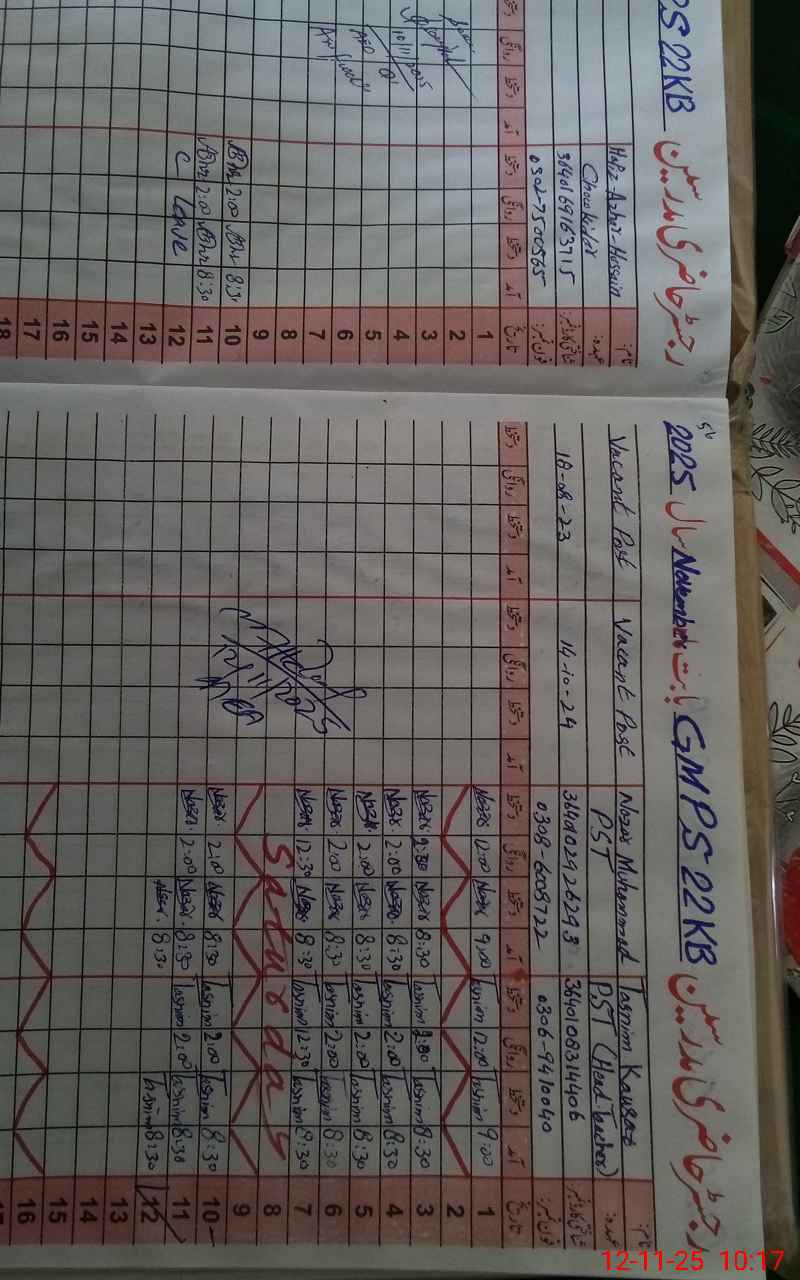 رجسٹر حاضری مدرسین GMPS 22KB بابت November سال 2025
نام:
Tasnim Kausar
Nazar Muhammad
Vacant Post
Vacant Post
عہدہ:
PST (Head Teacher)
PST
شناختی کارڈ نمبر:
3640108314406
14-10-24
18-08-23
فون نمبر:
0306-9410040
0308-6008722
تاریخ آمد دستخط روانگی دستخط آمد دستخط روانگی دستخط آمد دستخط روانگی دستخط آمد دستخط روانگی دستخط
1 9:00 Tasnim 12:00 Tasnim 9:00 Nazar 12:00 Nazar
2
3 8:30 Tasnim 2:00 Tasnim 8:30 Nazar 2:00 Nazar
4 8:30 Tasnim 2:00 Tasnim 8:30 Nazar 2:00 Nazar
5 8:30 Tasnim 2:00 Tasnim 8:30 Nazar 2:00 Nazar
6 8:30 Tasnim 2:00 Tasnim 8:30 Nazar 2:00 Nazar
7 8:30 Tasnim 12:30 Tasnim 8:30 Nazar 12:30 Nazar
8 Saturday
9
10 8:30 Tasnim 2:00 Tasnim 8:30 Nazar 2:00 Nazar
11 8:30 Tasnim 2:00 Tasnim 8:30 Nazar 2:00 Nazar
12 8:30 Tasnim 8:30 Nazar
13
14
15
16
17
رجسٹر حاضری مدرسین
PS 22KB
نام:
Hafiz Azhar Hussain
عہدہ:
Chowkidar
شناختی کارڈ نمبر:
3640169163715
فون نمبر:
0302-7500565
تاریخ آمد دستخط روانگی دستخط آمد دستخط روانگی دستخط
1
2
3
4
5
6
7
8
9
10 8:30 2:00
11 8:30 2:00
12 C Leave
13
14
15
16
17
18
10/11/2025
AEO
12-11-25 10:17